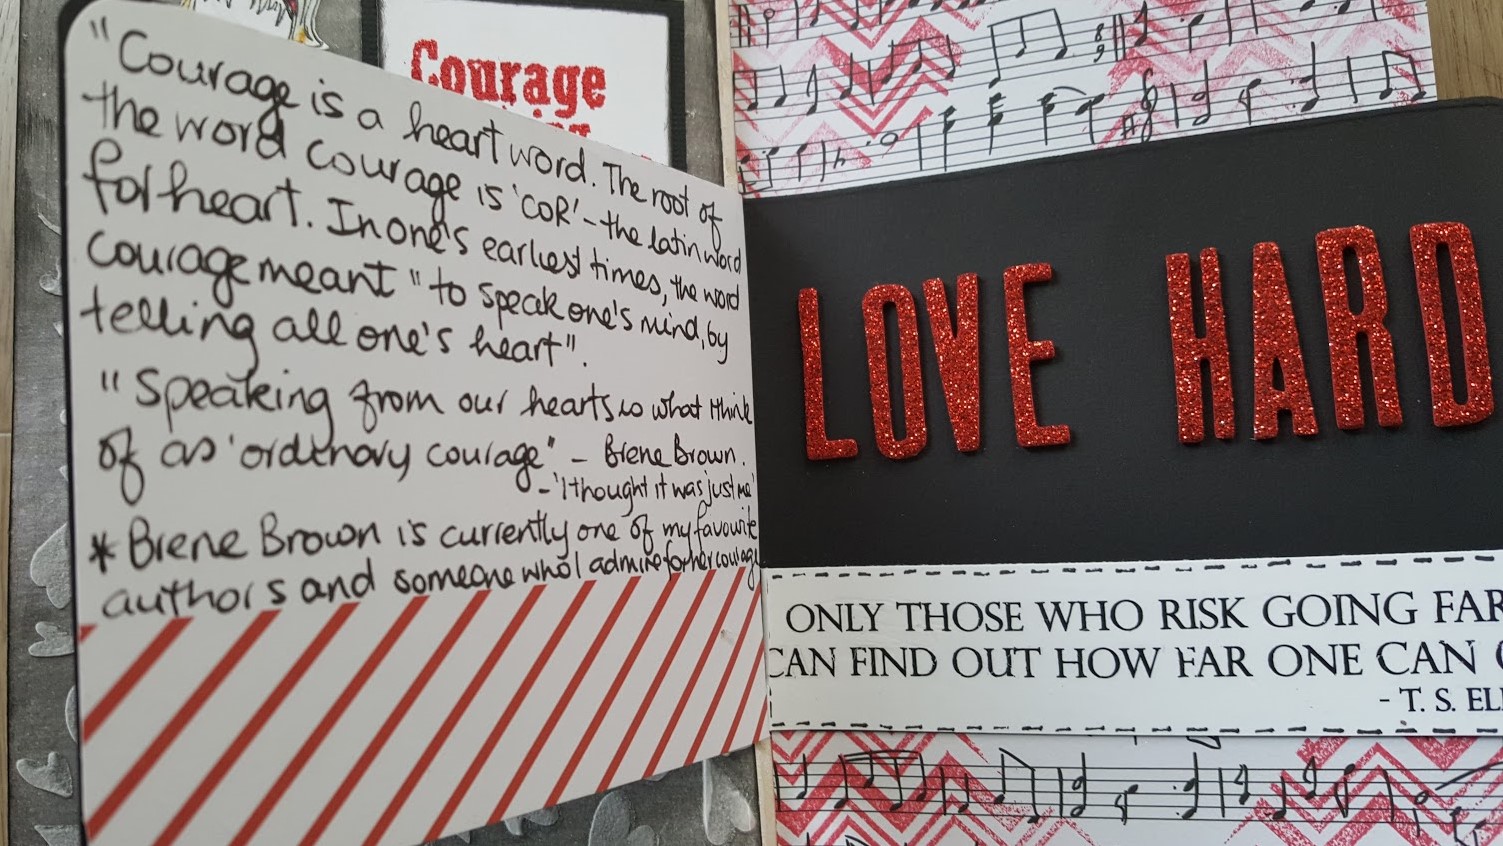 "Courage is a heart word. The root of
the word courage is 'COR' - the latin word
for heart. In one's earliest times, the word
courage meant "to speak one's mind, by
telling all one's heart".
"Speaking from our hearts is what I think
of as 'ordinary courage" - Brene Brown.
- 'I thought it was just me'
* Brene Brown is currently one of my favourite
authors and someone who I admire for her courage
Courage
LOVE HARD
ONLY THOSE WHO RISK GOING FAR
CAN FIND OUT HOW FAR ONE CAN
- T. S. EL